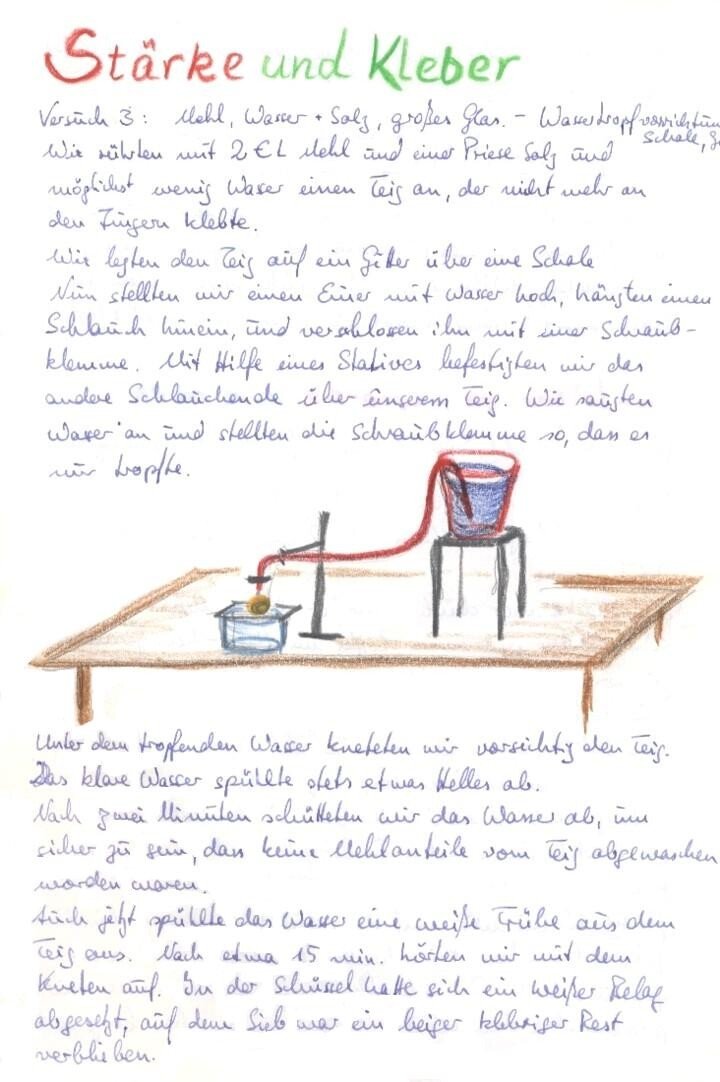 Stärke und Kleber
Versuch 3: Mehl, Wasser + Salz, großes Glas. - Wassertropfvorrichtung
Schale,
Wir rührten mit 2 EL Mehl und einer Priese Salz und
möglichst wenig Waser einen Teig an, der nicht mehr an
den Fingern klebte.
Wir legten den Teig auf ein Gitter über eine Schale
Nun stellten wir einen Eimer mit Wasser hoch, hängten einen
Schlauch hinein, und verschlossen ihn mit einer Schraub-
klemme. Mit Hilfe eines Statives befestigten wir das
andere Schlauchende über unserem Teig. Wir saugten
Wasser an und stellten die Schraubklemme so, dass es
nur tropfte.
Unter dem tropfenden Wasser kneteten wir vorsichtig den Teig.
Das klare Wasser spühlte stets etwas Helles ab.
Nach zwei Minuten schütteten wir das Wasser ab, um
sicher zu sein, dass keine Mehlanteile vom Teig abgewaschen
worden waren.
Auch jetzt spühlte das Wasser eine weiße Trübe aus dem
Teig aus. Nach etwa 15 min. hörten wir mit dem
Kneten auf. In der Schüssel hatte sich ein weißer Belag
abgesetzt, auf dem Sieb war ein beiger klebriger Rest
verblieben.